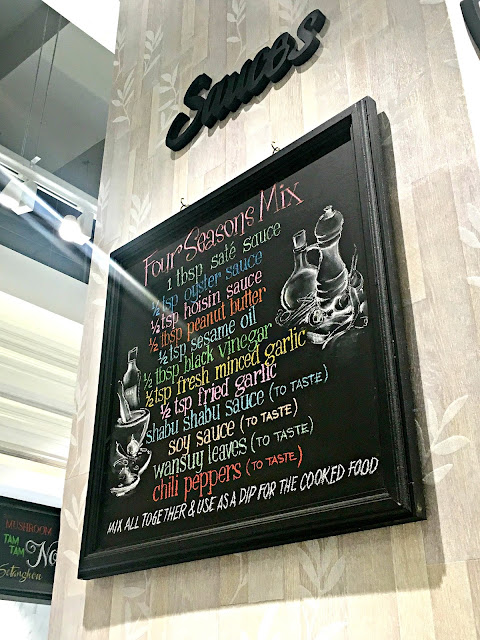 Sauces
Four Seasons Mix
1 tbsp saté sauce
½ tsp oyster sauce
½ tsp hoisin sauce
½ tbsp peanut butter
½ tsp sesame oil
½ tbsp black vinegar
½ tsp fresh minced garlic
½ tsp fried garlic
shabu shabu sauce (TO TASTE)
soy sauce (TO TASTE)
wansuy leaves (TO TASTE)
chili peppers (TO TASTE)
MIX ALL TOGETHER & USE AS A DIP FOR THE COOKED FOOD
MUSHROOM
TAM
TAM
No
Sotanghon